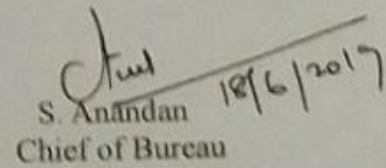 18/6/2019
S. Anandan
Chief of Bureau